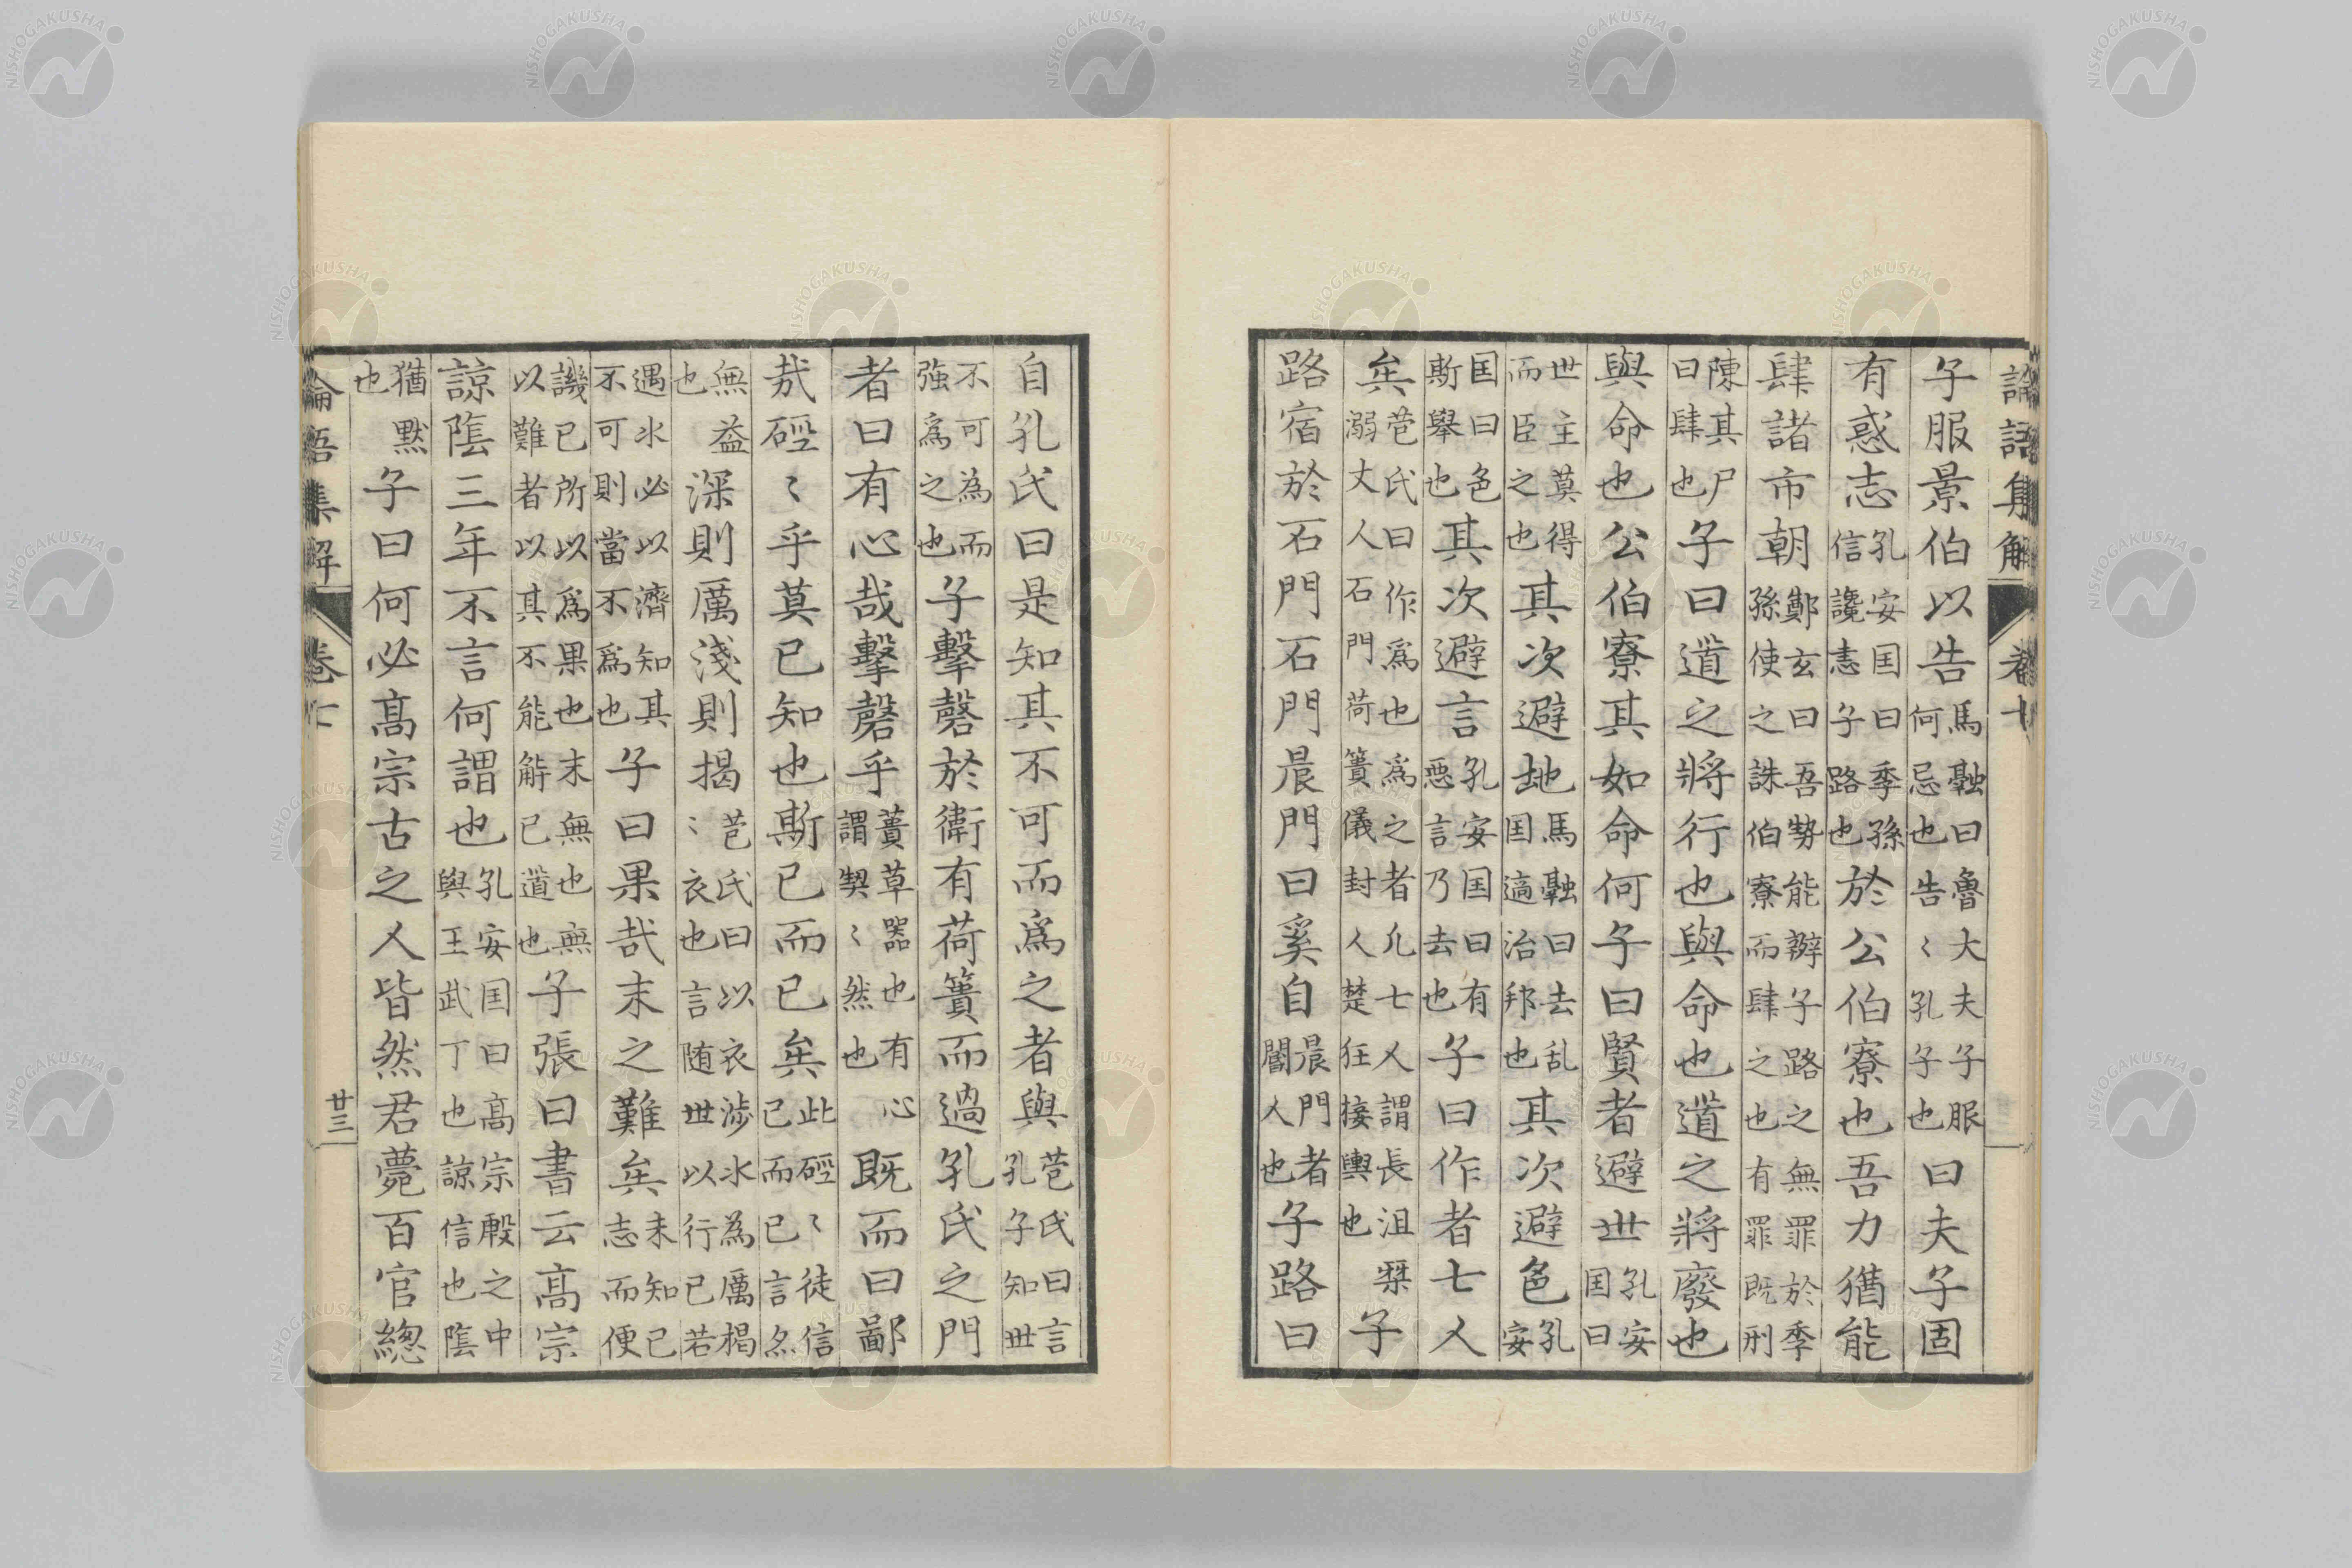 論語集解 卷七
子服景伯以告馬融曰魯大夫子服何忌也告〻孔子也曰夫子固
有惑志孔安囯曰季孫信讒恚子路也於公伯寮也吾力猶能
肆諸市朝鄭玄曰吾勢能辨子路之無罪於季孫使之誅伯寮而肆之也有罪既刑
陳其尸曰肆也子曰道之將行也與命也道之將廢也
與命也公伯寮其如命何子曰賢者避世孔安囯曰
世主莫得而臣之也其次避地馬融曰去乱囯適治邦也其次避色孔安
囯曰色斯舉也其次避言孔安囯曰有惡言乃去也子曰作者七人
矣苞氏曰作爲也爲之者凡七人謂長沮桀溺丈人石門荷蕢儀封人楚狂接輿也子
路宿於石門石門晨門曰奚自晨門者閽人也子路曰
自孔氏曰是知其不可而爲之者與苞氏曰言孔子知世
不可為而強爲之也子擊磬於衛有荷蕢而過孔氏之門
者曰有心哉擊磬乎蕢草器也有心謂契〻然也既而曰鄙
哉硜〻乎莫已知也斯已而已矣此硜〻徒信已而已言亦
無益也深則厲淺則揭苞氏曰以衣渉水為厲揭〻衣也言随世以行已若
遇水必以濟知其不可則當不爲也子曰果哉末之難矣未知已志而便
譏已所以爲果也末無也無以難者以其不能解已道也子張曰書云高宗
諒陰三年不言何謂也孔安囯曰高宗殷之中與王武丁也諒信也陰
猶默也子曰何必高宗古之人皆然君薨百官總
論語集解 卷七 廿三
NISHOGAKUSHA